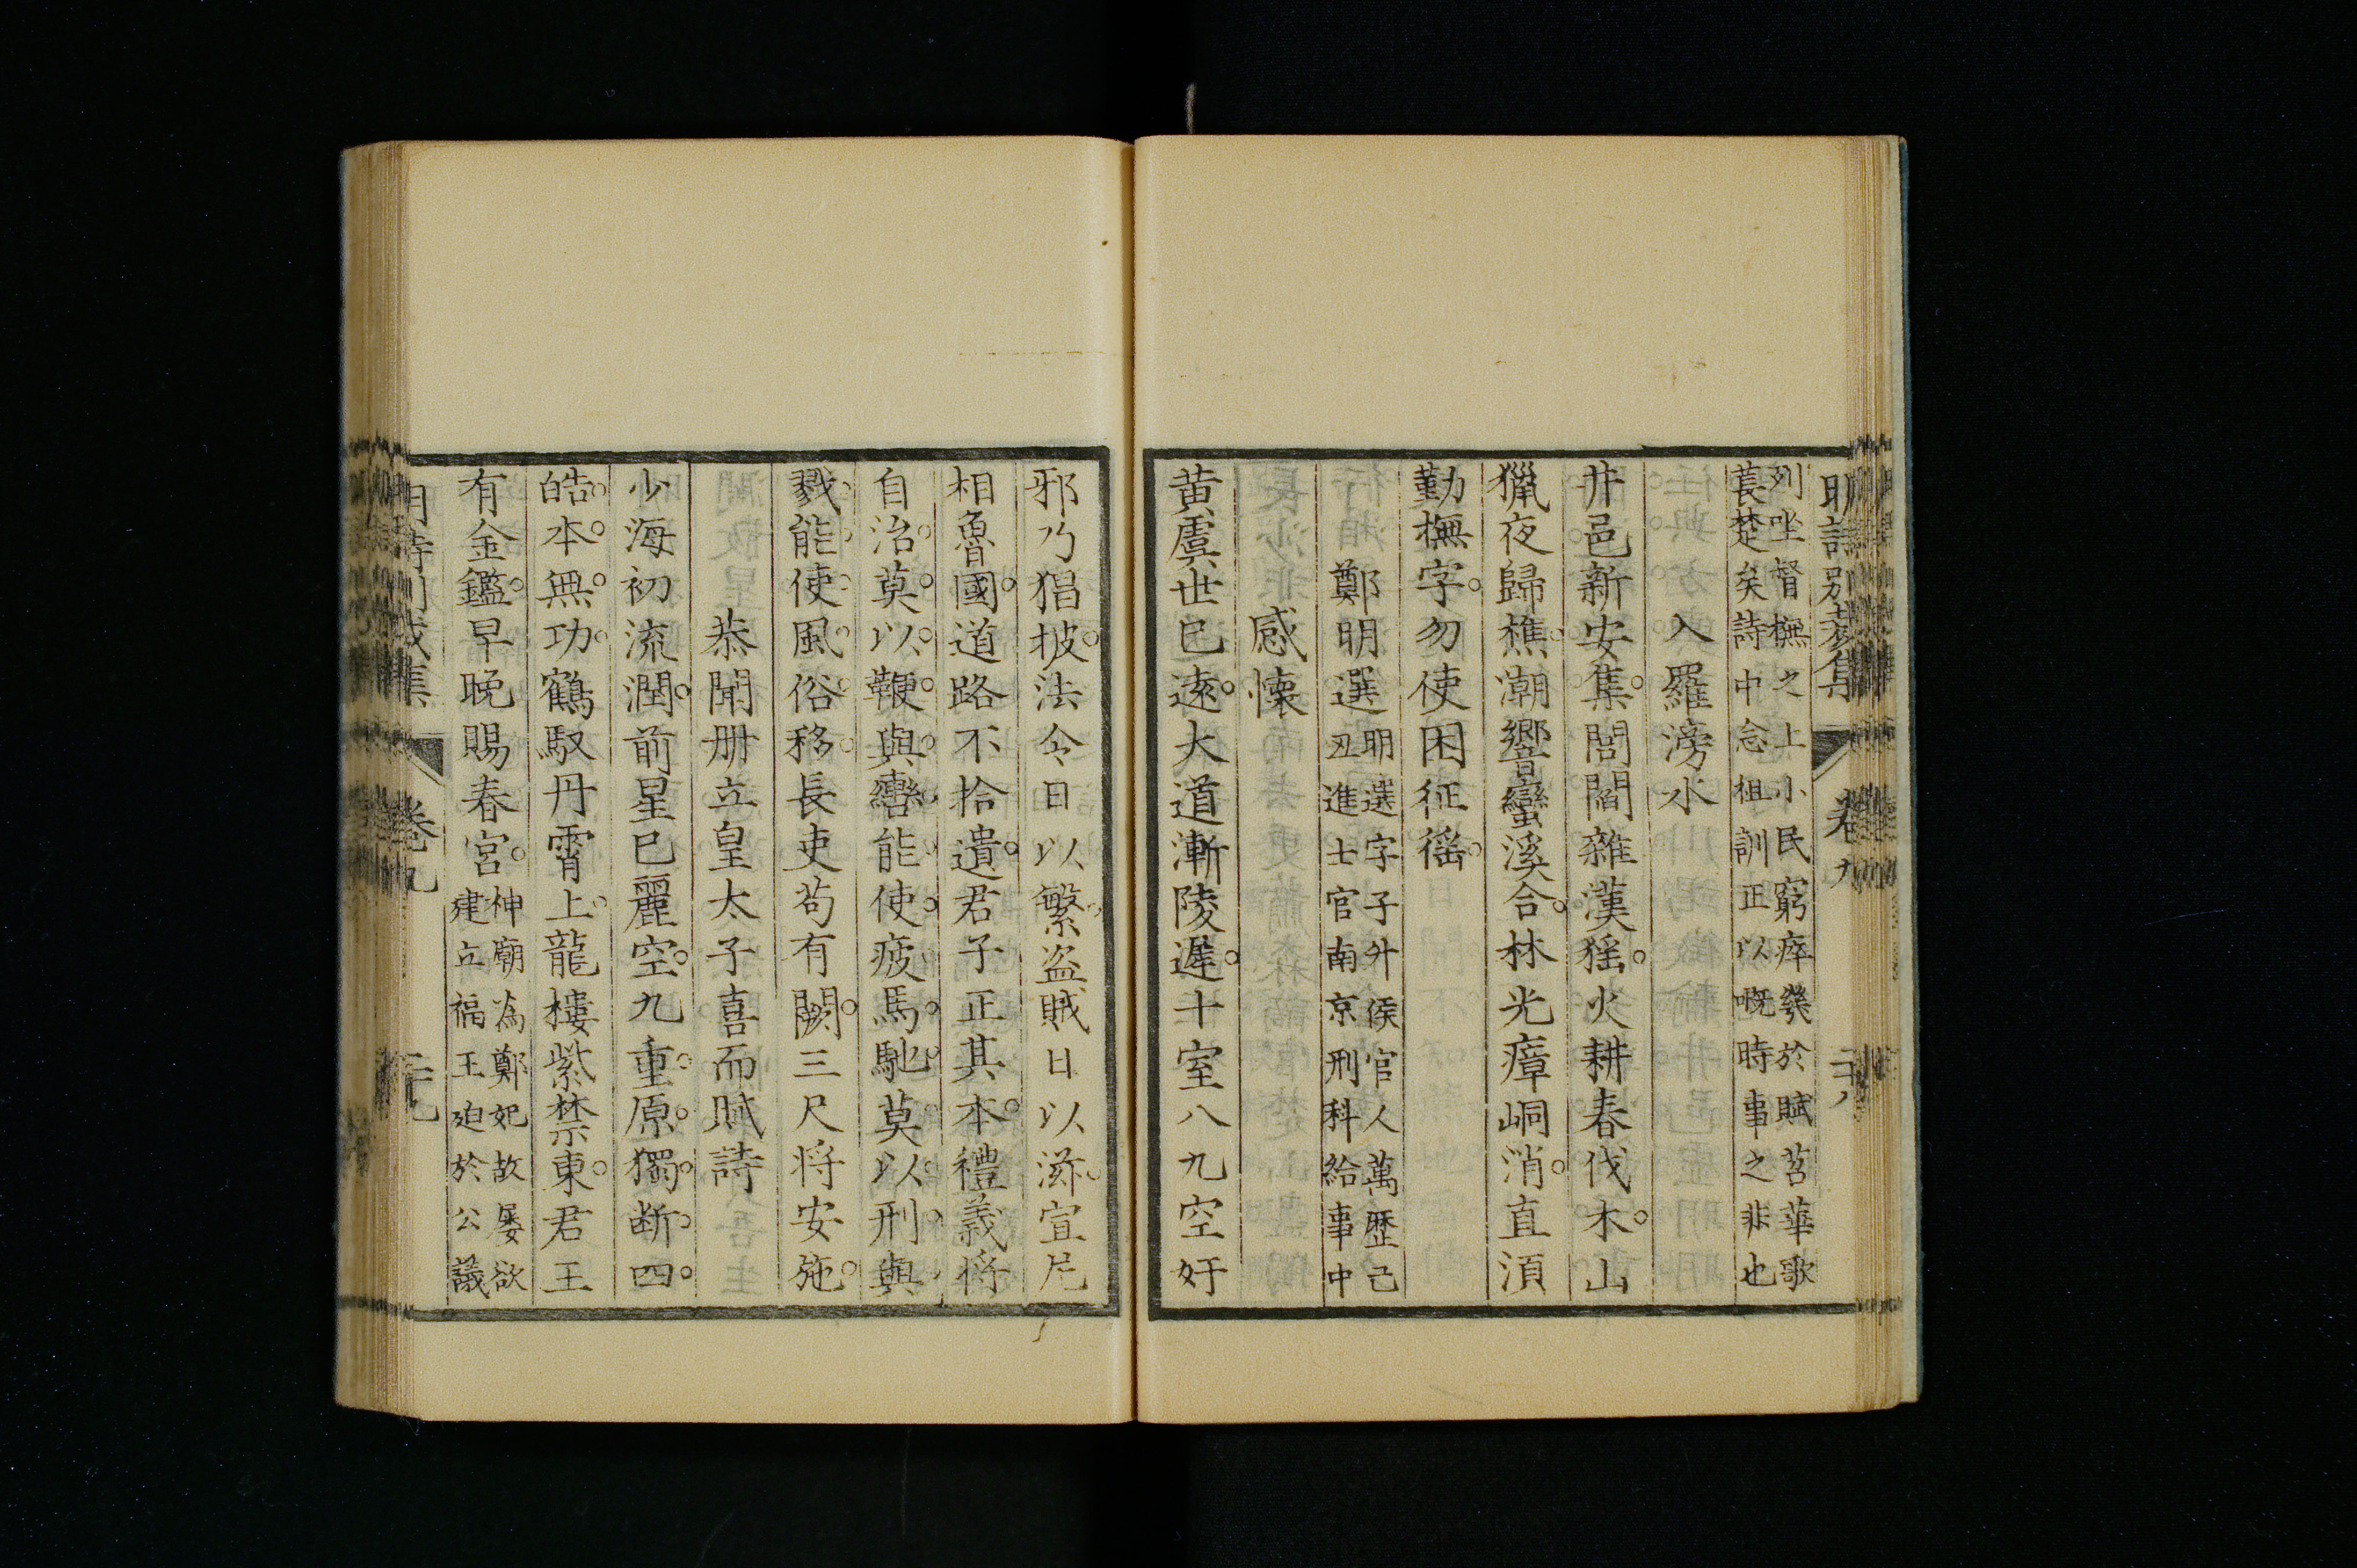 明詩別裁集 卷九 二十八
列坐督撫之上小民窮瘁幾於賦苕華歌
萇楚矣詩中念祖訓正以嘅時事之非也
入羅滂水
井邑新安集閭閻雜漢猺火耕春伐木山
獵夜歸樵潮響蠻溪合林光瘴峒消直須
勤撫字勿使困征徭
鄭明選
明選字子升侯官人萬歷己
丑進士官南京刑科給事中
感懷
黃虞世已遠大道漸陵遲十室八九空奸
邪乃猖披法令日以繁盜賊日以滋宣尼
相魯國道路不拾遺君子正其本禮義将
自治莫以鞭與轡能使疲馬馳莫以刑與
戮能使風俗移長吏苟有闕三尺将安施
恭聞冊立皇太子喜而賦詩
少海初流潤前星已麗空九重原獨断四
皓本無功鶴馭丹霄上龍樓紫禁東君王
有金鑑早晚賜春宮
神廟為鄭妃故屢欲
建立福王廹於公議
明詩別裁集 卷九